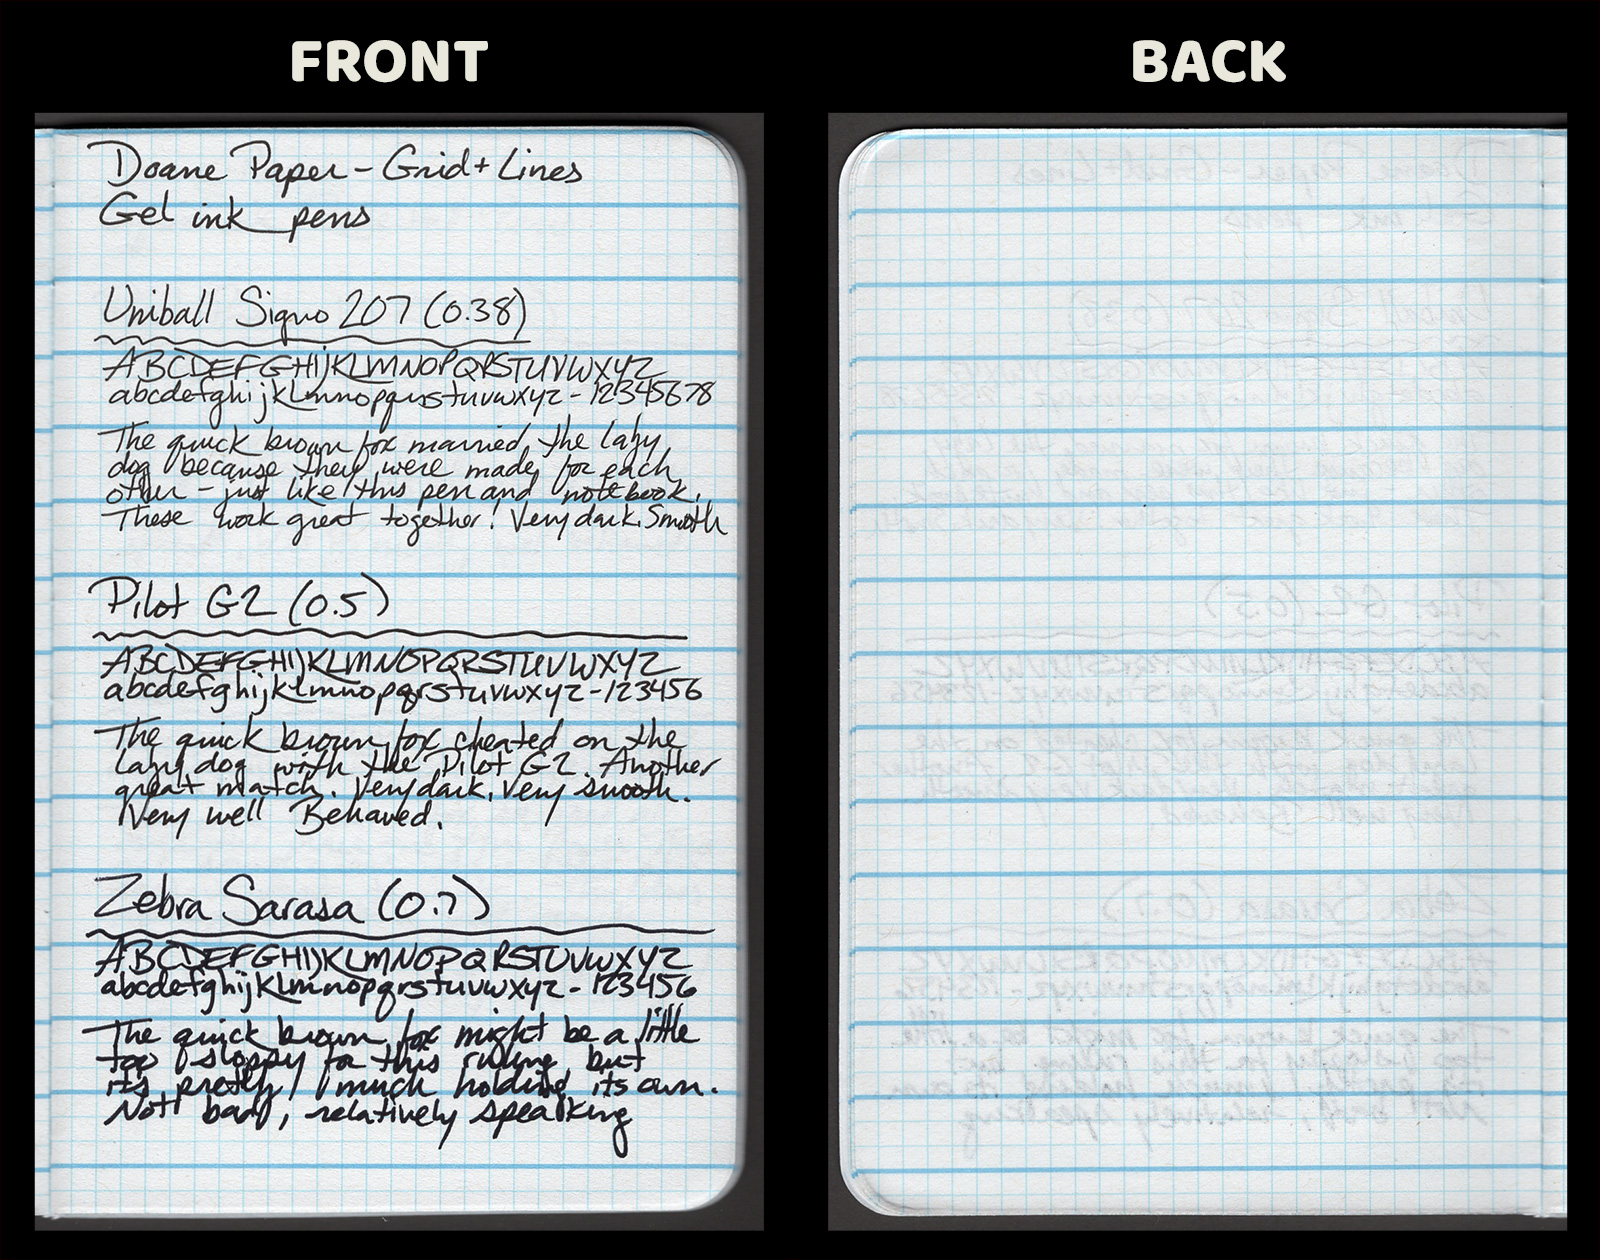 FRONT
Doane Paper - Grid + Lines
Gel ink pens
Uniball Signo 207 (0.38)
ABCDEFGHIJKLMNOPQRSTUVWXYZ
abcdefghijklmnopqrstuvwxyz - 12345678
The quick brown fox married the lazy
dog because they were made for each
other - just like this pen and notebook.
These work great together! Very dark. Smooth
Pilot G2 (0.5)
ABCDEFGHIJKLMNOPQRSTUVWXYZ
abcdefghijklmnopqrstuvwxyz - 123456
The quick brown fox cheated on the
lazy dog with the Pilot G2. Another
great match. Very dark. Very smooth.
Very well Behaved.
Zebra Sarasa (0.7)
ABCDEFGHIJKLMNOPQRSTUVWXYZ
abcdefghijklmnopqrstuvwxyz - 123456
The quick brown fox might be a little
too sloppy for this ruling but
its pretty much holding its own.
Not bad, relatively speaking
BACK